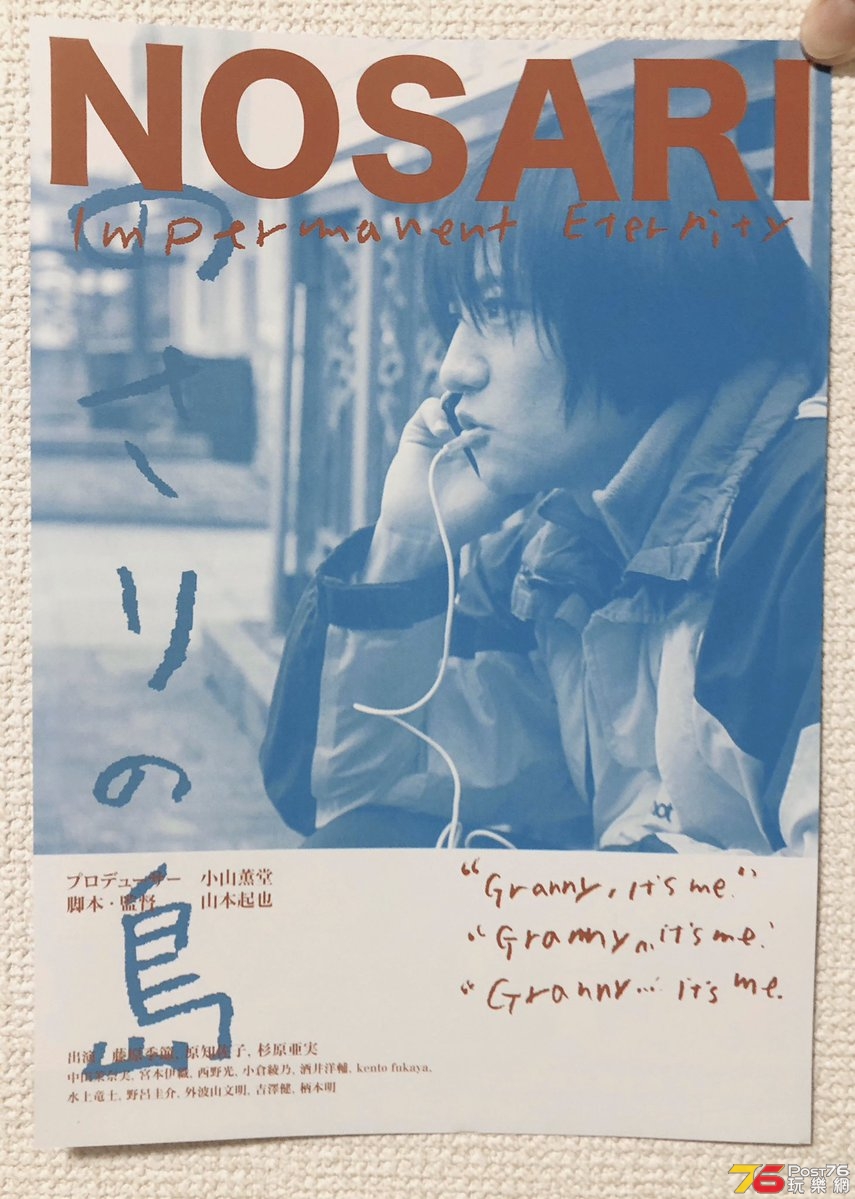 NOSARI
Impermanent Eternity
のさりの島
プロデューサー 小山薫堂
脚本・監督 山本起也
"Granny, it's me."
"Granny, it's me.
"Granny... it's me.
出演 藤原季節, 原知佐子, 杉原亜実
中田茉奈実, 宮本伊織, 西野光, 小倉綾乃, 酒井洋輔, kento fukaya,
水上竜士, 野呂圭介, 外波山文明, 吉澤健, 柄本明
76 POST76
玩樂網